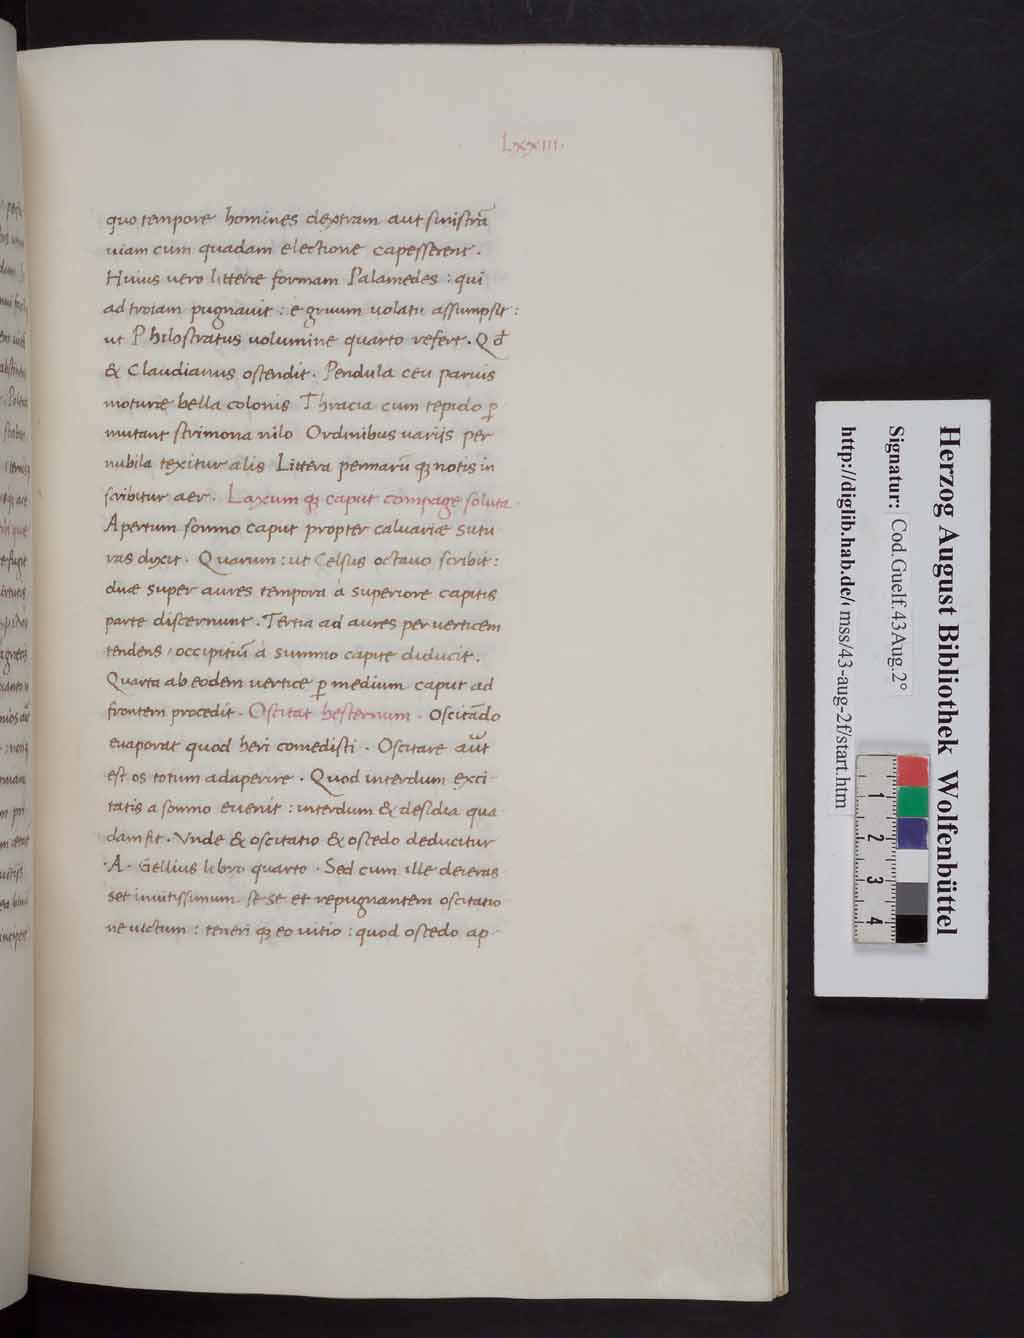 Lxxiii.
quo tempore homines dextram aut sinistrā
uiam cum quadam electione capesserent.
Huius uero litterae formam Palamedes : qui
ad troiam pugnauit : e gruum uolatu assumpsit :
ut Philostratus uolumine quarto refert. Qd̄
& Claudianus ostendit. Pendula ceu paruis
moturae bella colonis Thracia cum tepido ꝑ
mutant strimona nilo Ordinibus uarijs per
nubila texitur alis Littera pennarū qꝫ notis in
scribitur aer. Laxum qꝫ caput compage soluta.
Apertum somno caput propter caluariae sutu
ras dixit. Quarum : ut Celsus octauo scribit :
duae super aures tempora à superiore capitis
parte discernunt. Tertia ad aures per uerticem
tendens, occipitiū à summo capite diducit.
Quarta ab eodem uertice ꝑ medium caput ad
frontem procedit. Oscitat hesternum. Oscitādo
euaporat quod heri comedisti. Oscitare aūt
est os totum adaperire. Quod interdum exci-
tatis a somno euenit : interdum & desidia qua
dam fit. Vnde & oscitatio & oscedo deducitur
.A. Gellius libro quarto. Sed cum ille deieras
set inuitissimum se se et repugnantem oscitatio
ne uictum : teneri qꝫ eo uitio : quod oscedo ap-
Herzog August Bibliothek Wolfenbüttel
Signatur: Cod.Guelf.43 Aug.2°
http://diglib.hab.de/ mss/43-aug-2f/start.htm
1
2
3
4